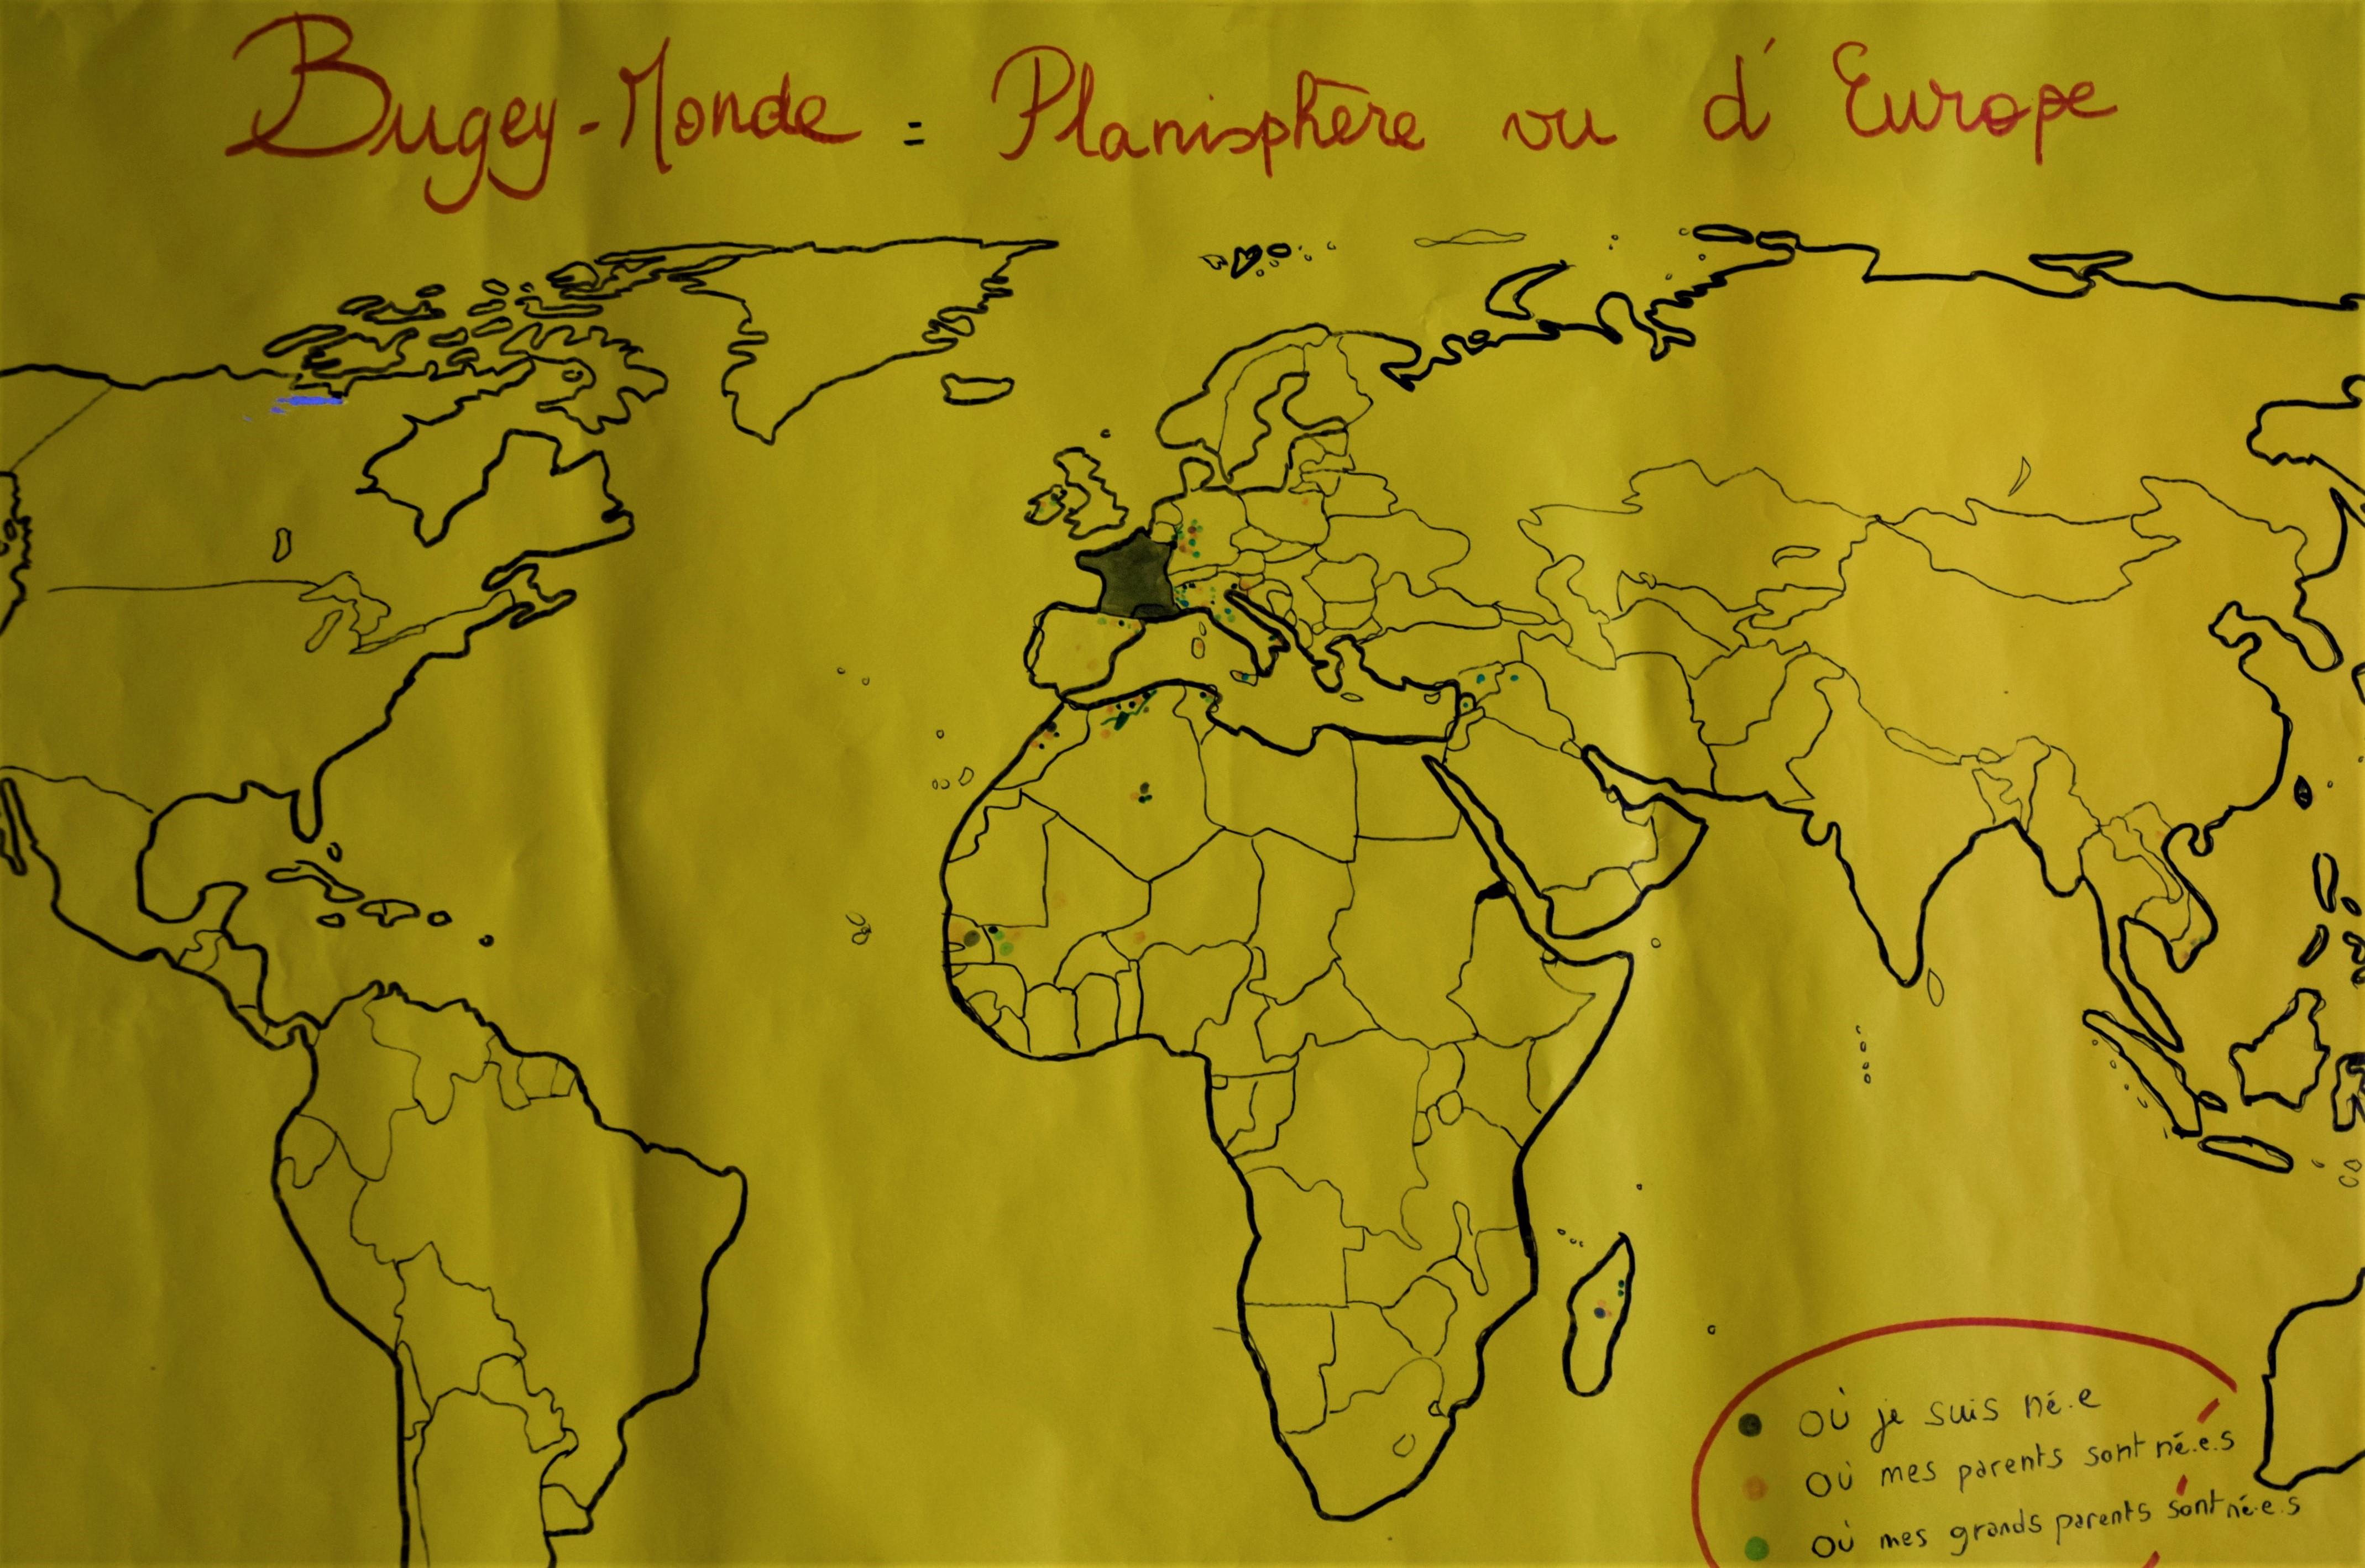 Bugey-Monde = Planisphère vu d'Europe
Où je suis né.e
Où mes parents sont né.e.s
Où mes grands parents sont né.e.s